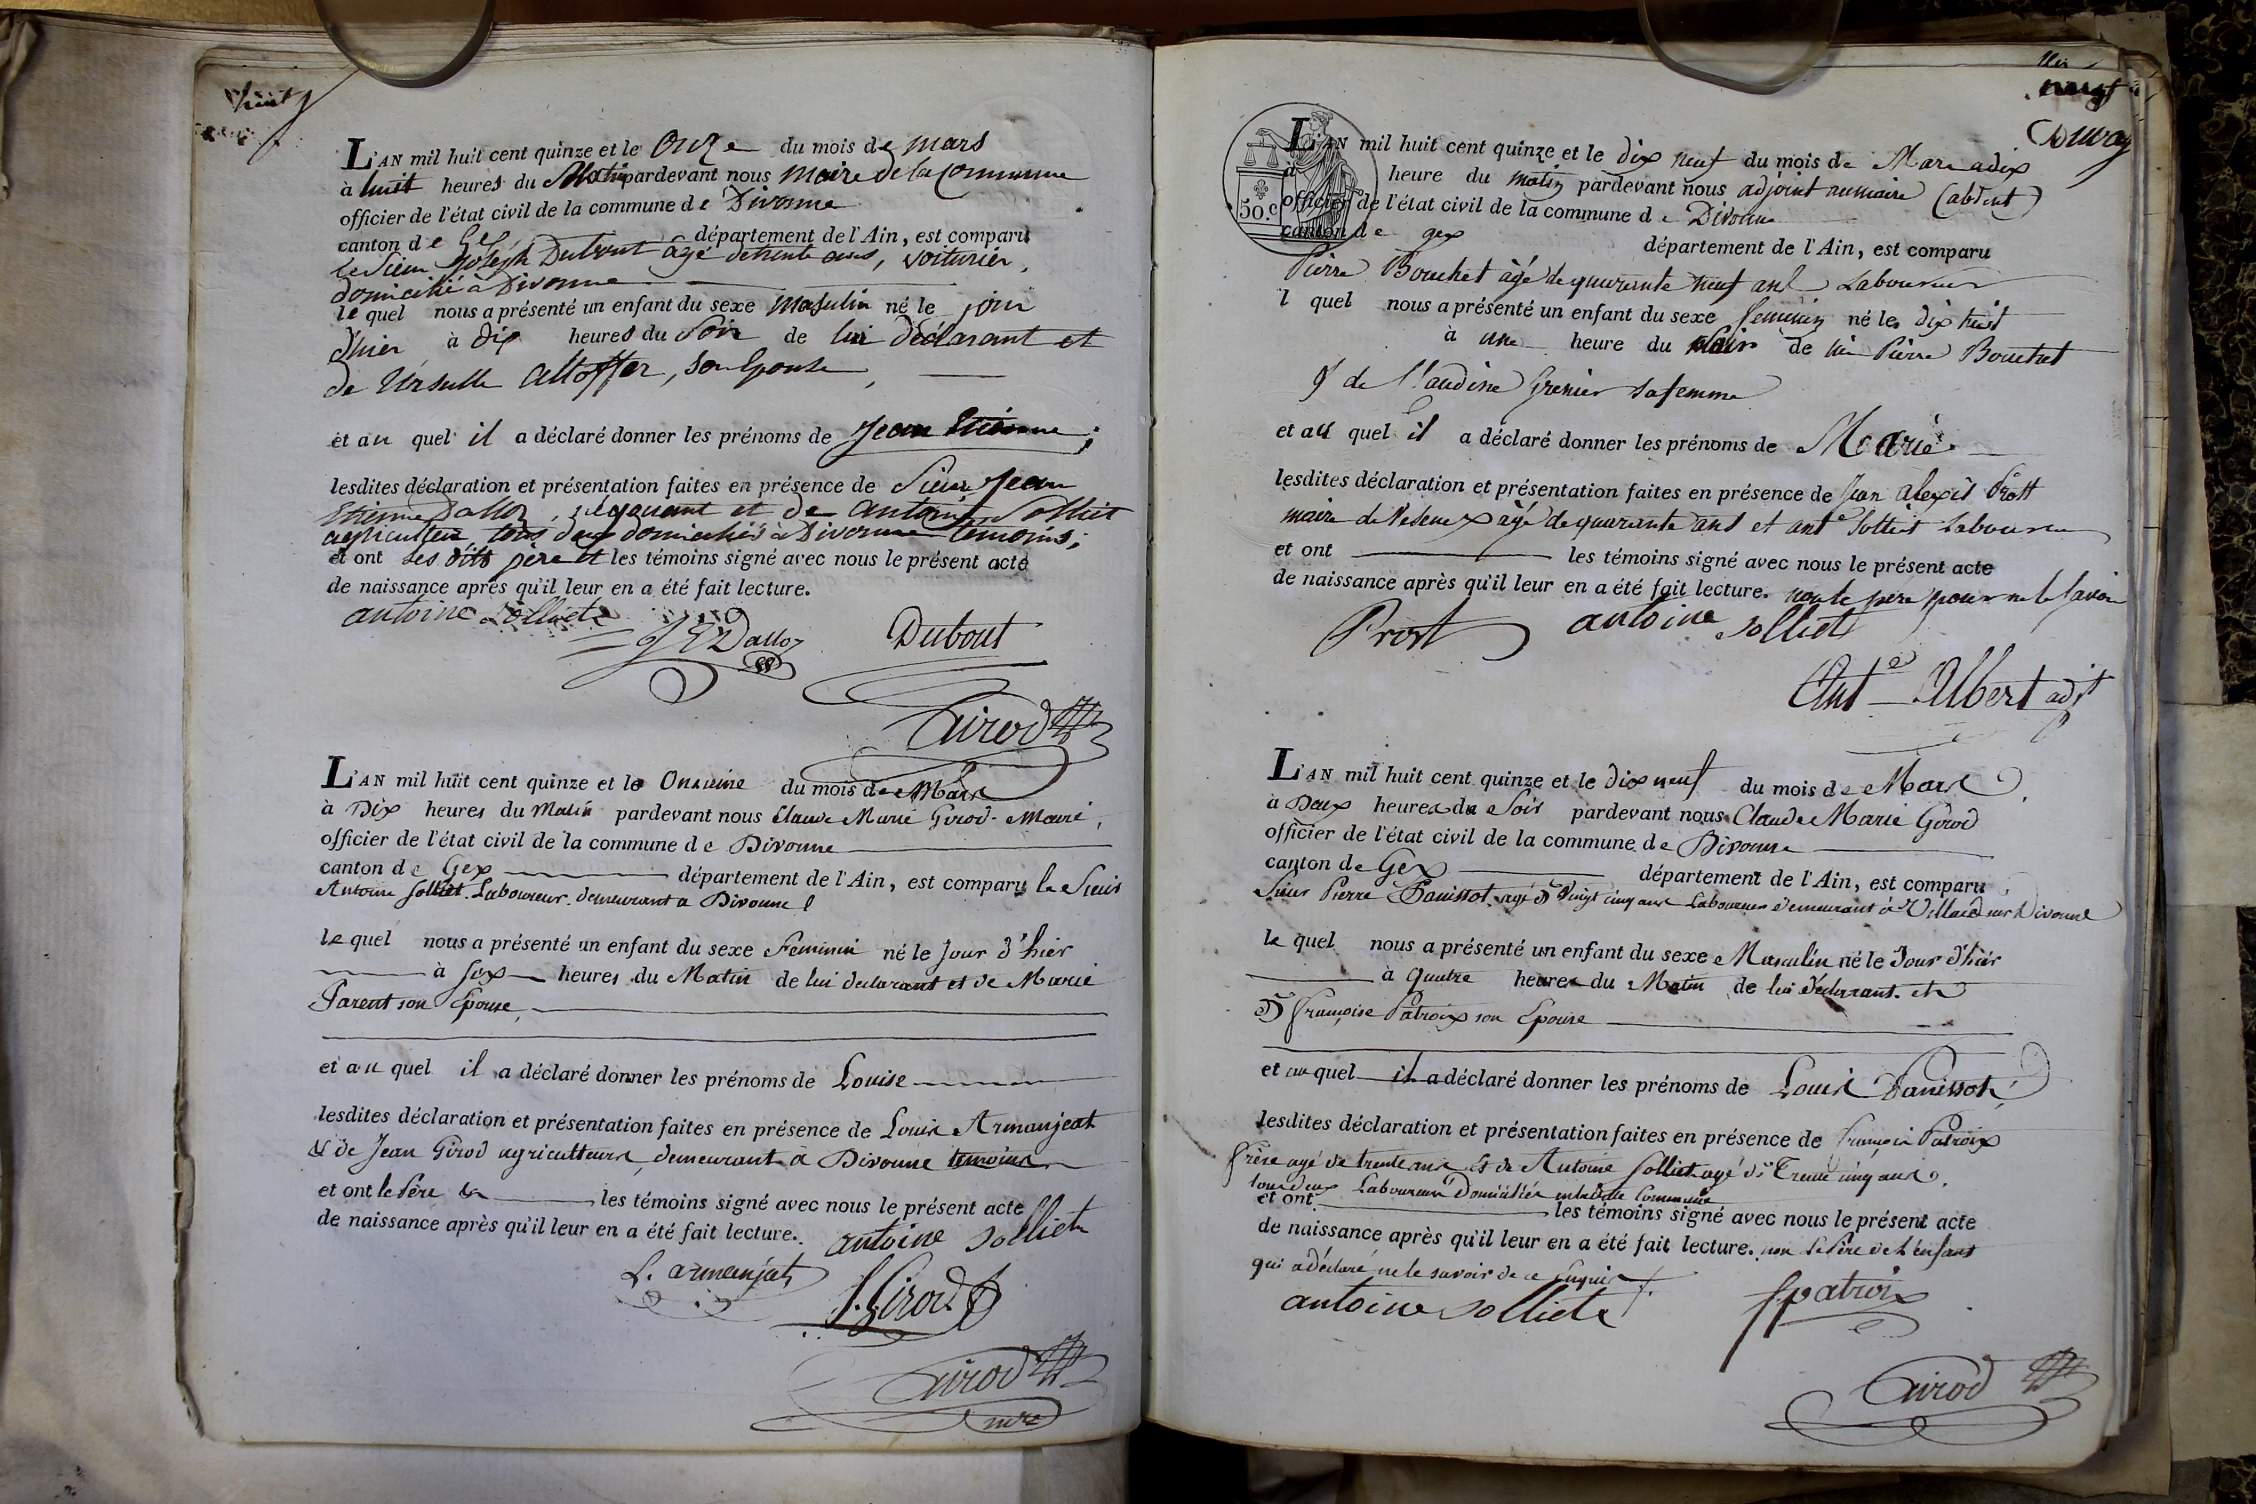 huit
L'AN mil huit cent quinze et le Onze du mois de mars
à huit heures du Matin pardevant nous maire de la Commune
officier de l'état civil de la commune de Divonne
canton de Gex département de l'Ain, est comparu
le Sieur Joseph Dubout âgé de trente ans, voiturier,
domicilié à Divonne
le quel nous a présenté un enfant du sexe masculin né le jour
d'hier à dix heures du Soir de lui déclarant et
de Ursulle Altoffer, son Epouse,
et au quel il a déclaré donner les prénoms de Jean Etienne;
lesdites déclaration et présentation faites en présence de Sieur Jean
Etienne Dalloz, et de antoine Solliet
agriculteur, tous deux domiciliés à Divonne temoins;
et ont les dits père et les témoins signé avec nous le présent acte
de naissance après qu'il leur en a été fait lecture.
antoine solliets
J E Dalloz Dubout
Girod
L'AN mil huit cent quinze et le Onzieme du mois de Mars
à Dix heures du Matin pardevant nous Claude Marie Girod Maire,
officier de l'état civil de la commune de Divonne
canton de Gex département de l'Ain, est comparu le Sieur
Antoine Solliet Laboureur demeurant a Divonne
le quel nous a présenté un enfant du sexe Féminin né le Jour d'hier
à six heures du Matin de lui declarant et de Marie
Parent son Epouse,
et au quel il a déclaré donner les prénoms de Louise
lesdites déclaration et présentation faites en présence de Louis Armanjeat
& de Jean Girod agriculteurs demeurant à Divonne temoins
et ont le Père & les témoins signé avec nous le présent acte
de naissance après qu'il leur en a été fait lecture. antoine solliets
L. armanjat
J. Girod
Girod
mre
neuf
Duvay
50.c
L'AN mil huit cent quinze et le dix neuf du mois de Mars a dix
à heure du matin pardevant nous adjoint au maire (absent)
officier de l'état civil de la commune de Divonne
canton de gex département de l'Ain, est comparu
Pierre Bouchet âgé de quarante neuf ans Laboureur
l quel nous a présenté un enfant du sexe feminin né le dix huit
à une heure du soir de lui Pierre Bouchet
& de Claudine Grenier sa femme
et au quel il a déclaré donner les prénoms de Marie
lesdites déclaration et présentation faites en présence de Jean alexis Prost
maire de Vesenex âgé de quarante ans et ante Solliet Laboureur
et ont les témoins signé avec nous le présent acte
de naissance après qu'il leur en a été fait lecture. non le père pour ne le savoir
Prost antoine solliets
Ante Albert adjt
L'AN mil huit cent quinze et le dix neuf du mois de Mars
à Deux heures du Soir pardevant nous Claude Marie Girod
officier de l'état civil de la commune de Divonne
canton de Gex département de l'Ain, est comparu
Sieur Pierre Panissot agé de vingt cinq ans Laboureur demeurant à Villard sur Divonne
le quel nous a présenté un enfant du sexe Masculin né le Jour d'hier
à quatre heures du Matin de lui déclarant et
de Françoise Patroix son Epouse
et au quel il a déclaré donner les prénoms de Louis Panissot
lesdites déclaration et présentation faites en présence de François Patroix
frère agé de trente ans & de Antoine Solliet agé de Trente cinq ans
tous deux Laboureurs Domiciliés en ladite Commune
et ont les témoins signé avec nous le présent acte
de naissance après qu'il leur en a été fait lecture. non le Père de l'enfant
qui a déclaré ne le savoir de ce enquis
antoine solliets fpatroix
Girod